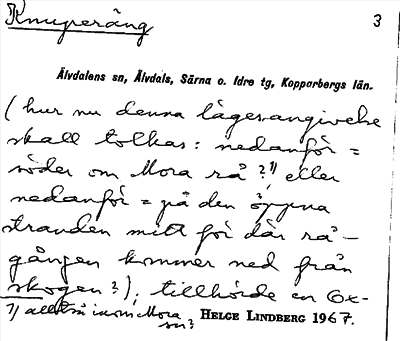 Knuperäng
3
Älvdalens sn, Älvdals, Särna o. Idre tg, Kopparbergs län.
(hur nu denna lägesangivelse
skall tolkas: nedanför =
söder om Mora rå?¹⁾, eller
nedanför = på den öppna
stranden mitt för där rå-
gången kommer ned från
skogen?); tillhörde en Ox-
¹⁾ alltså inom Mora
sn?
HELGE LINDBERG 1967.